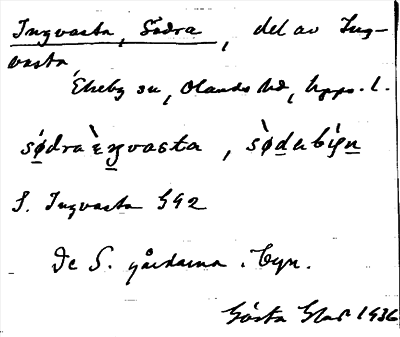 Ingvasta, Södra, del av Ing-
vasta,
Ekeby sn, Olands hd, Upps. l.
sǿdra ὲŋvasta, sø̀dabýn
S. Ingvasta 592
De S. gårdarna i byn.
Gösta 1936